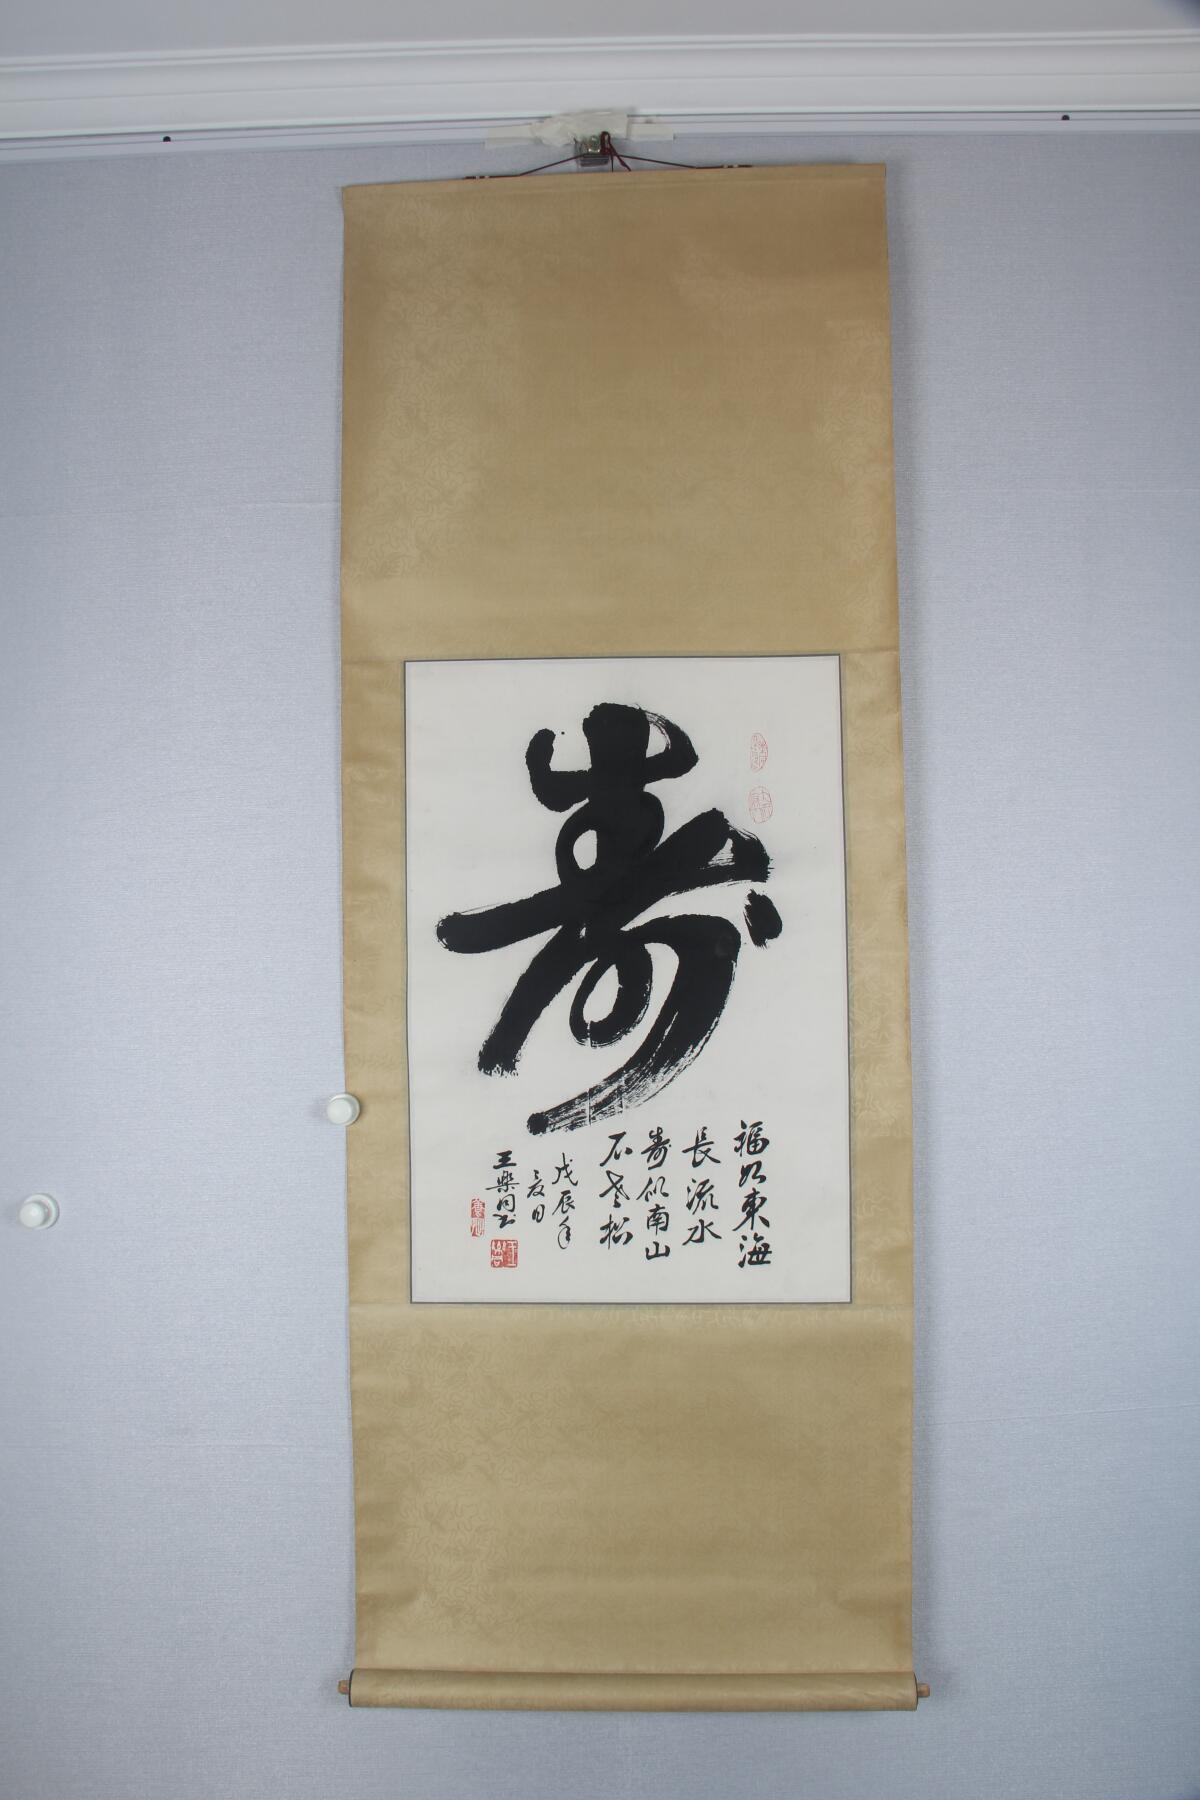 寿
福如東海
長流水
寿似南山
不老松
戊辰年
夏日
王樂同书